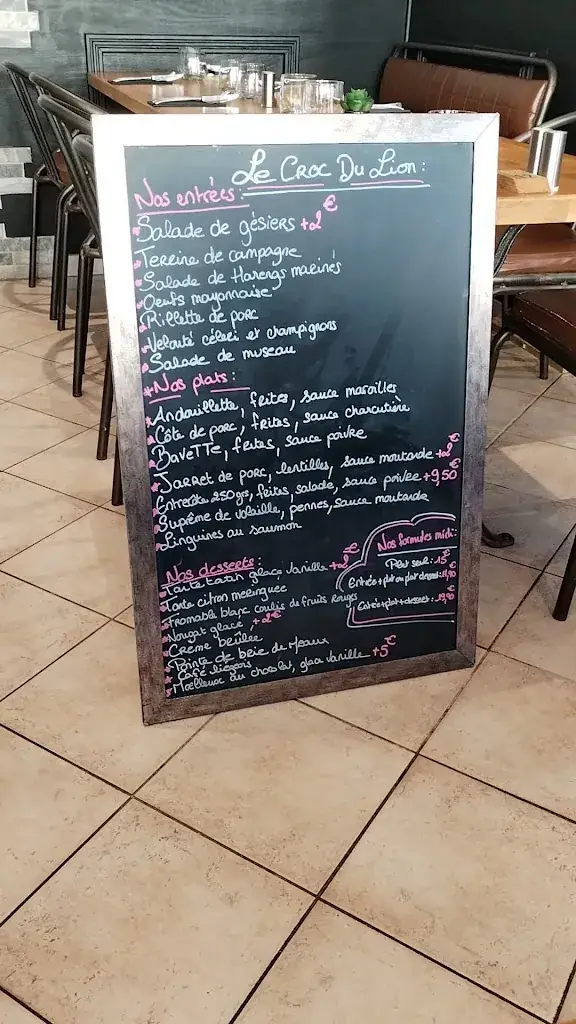 Le Croc Du Lion :
Nos entrées :
Salade de gésiers +2€
Terrine de campagne
Salade de Harengs marinés
Oeufs mayonnaise
Rillette de porc
Velouté céleri et champignons
Salade de museau
Nos plats :
Andouillette, frites, sauce maroilles
Côte de porc, frites, sauce charcutière
BaveTTe, frites, sauce poivre
Jarret de porc, lentilles, sauce moutarde +2€
Entrecôte 250grs, frites, salade, sauce poivre +9,50€
Suprême de volaille, pennes, sauce moutarde
Linguines au saumon
Nos desserts :
Tarte tatin glace vanille +2€
Tarte citron meringuée
Fromable blanc coulis de fruits Rouges
Nougat glacé, +2€
Creme brûlée
Pointe de brie de Meaux
Café liégeois
Moelleux au chocolat, glace vanille +5€
Nos formules midi :
Plat seul : 15€
Entrée + plat ou plat dessert :
Entrée + plat + dessert :